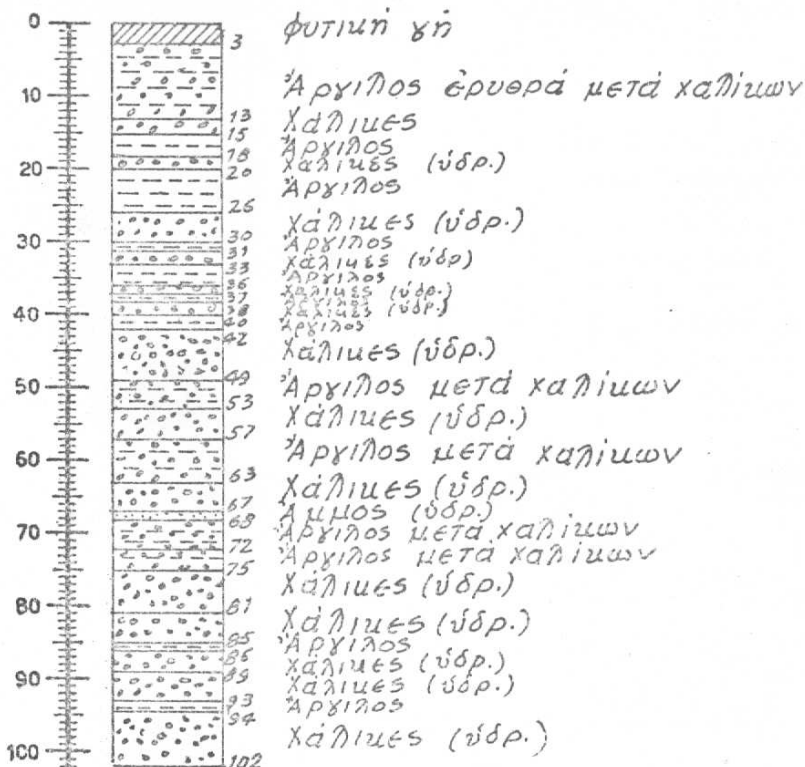 0
φυτική γή
3
Ἄργιλος ἐρυθρά μετά χαλίκων
10
13
Χάλικες
15
Ἄργιλος
18
Χάλικες (ὑδρ.)
20
20
Ἄργιλος
26
Χάλικες (ὑδρ.)
30
30
Ἄργιλος
31
Χάλικες (ὑδρ)
33
Ἄργιλος
36
Χάλικες (ὑδρ.)
37
Ἄργιλος
38
Χάλικες (ὑδρ.)
40
40
Ἄργιλος
42
Χάλικες (ὑδρ.)
49
50
Ἄργιλος μετά χαλίκων
53
Χάλικες (ὑδρ.)
57
Ἄργιλος μετά χαλίκων
60
63
Χάλικες (ὑδρ.)
67
Ἄμμος (ὑδρ.)
68
70
Ἄργιλος μετά χαλίκων
72
Ἄργιλος μετά χαλίκων
75
Χάλικες (ὑδρ.)
80
81
Χάλικες (ὑδρ.)
85
Ἄργιλος
86
Χάλικες (ὑδρ.)
89
90
Χάλικες (ὑδρ.)
93
Ἄργιλος
94
Χάλικες (ὑδρ.)
100
102